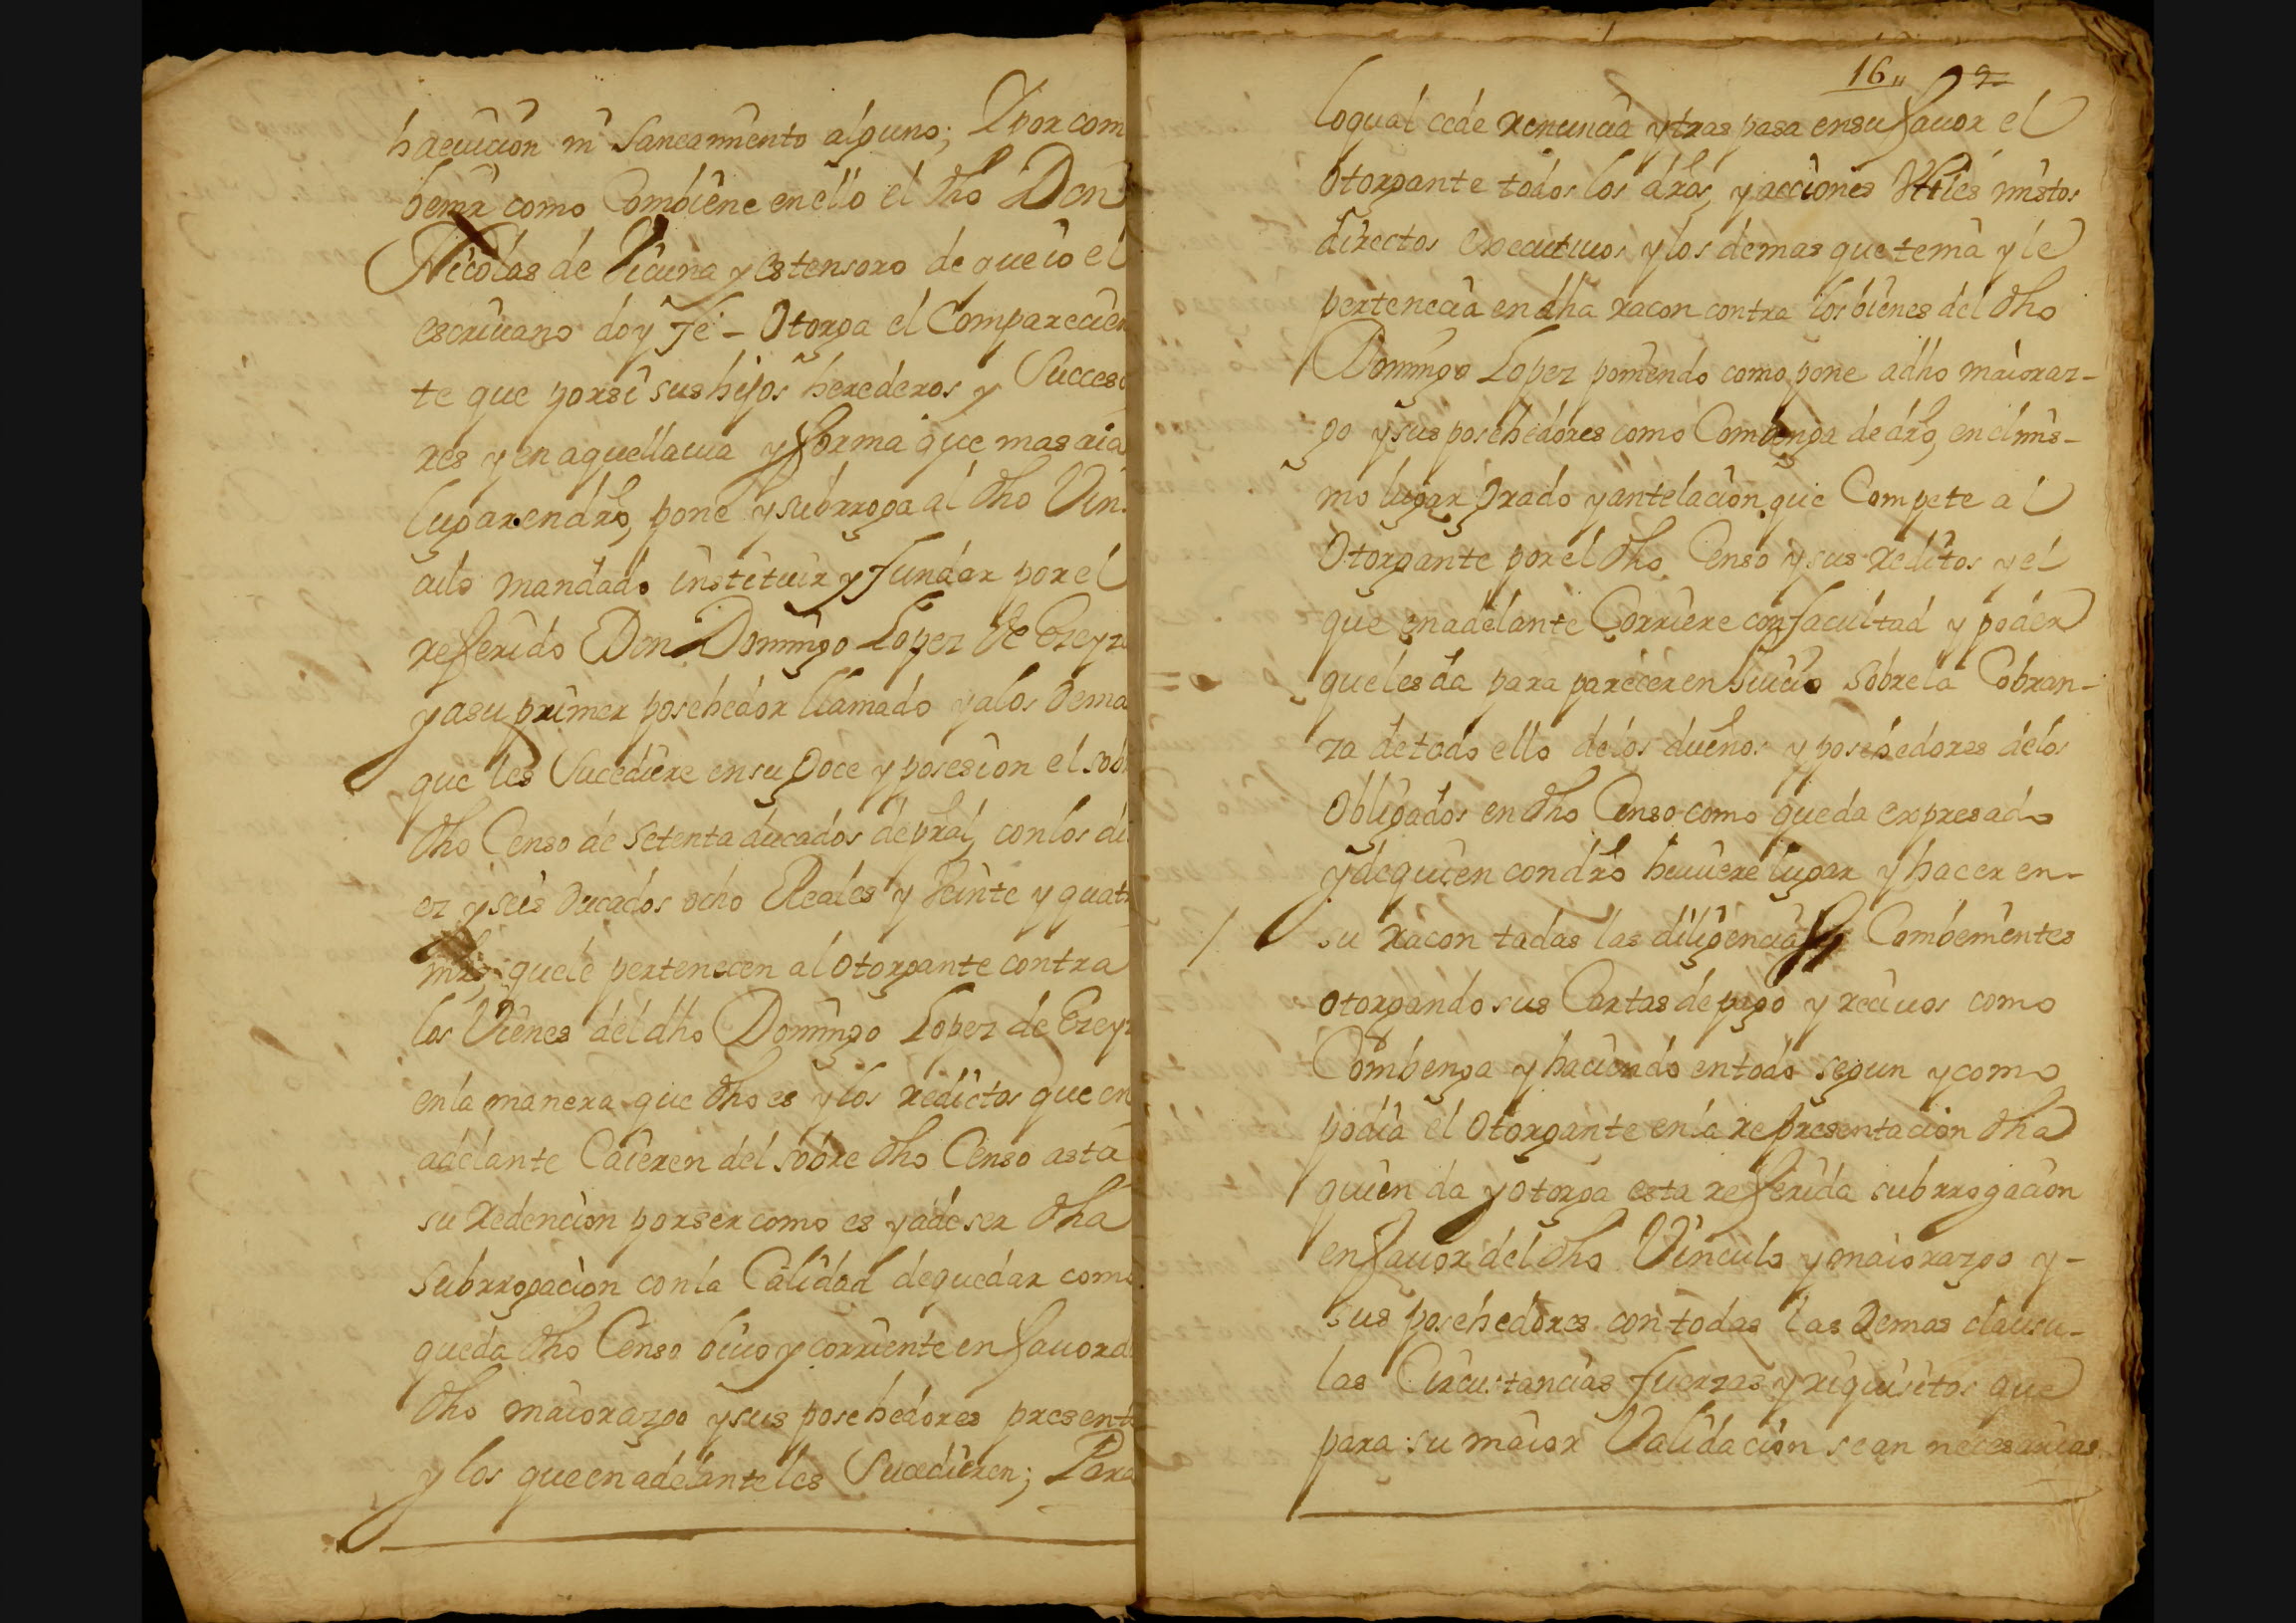 haeuicion ni saneamiento alguno; Y por com
benir como Combiene en ello el dho Don
Nicolas de Vicuna y estensoro de que io el
escriuano doy fe - Otorga el Comparecien
te que por si sus hijos herederos y Succeso
res y en aquella uia y forma que mas aia
lugar en dro, pone y subrroga al dho Vin
culo mandado instituir y fundar por el
referido Don Domingo Lopez de
y a su primer posehedor llamado y a los Dema
que les Sucediere en su Goce y posesion el sob
dho Censo de setenta ducados de pral, con los di
ez y seis Ducados ocho Reales y Veinte y quat
mrs, que le pertenecen al Otorgante contra
los Vienes del dho Domingo Lopez de
en la manera que dho es y los redictos que en
adelante Caieren del sobre dho Censo asta
su Redencion por ser como es y a de ser dha
subrrogacion con la Calidad de quedar como
queda dho Censo biuo y corriente en fauor d
dho maiorazgo y sus posehedores present
y los que en adelante les Sucedieren; Para
16
lo qual cede renuncia y traspasa en su fauor el
Otorgante todos los dros, y acciones Vtiles mistos
directos executiuos y los demas que tenia y le
pertenecia en dha racon contra los bienes del dho
Domingo Lopez poniendo como pone a dho maioraz-
go y sus posehedores como Combenga de dro, en el mis-
mo lugar Grado y antelacion que Compete al
Otorgante por el dho Censo y sus reditos y el
que en adelante Corriere con facultad y poder
que les da para parecer en Juicio sobre la Cobran-
za de todo ello de los dueños y posehedores de los
Obligados en dho Censo como queda expresado
y de quien con dro huuiere lugar y hacer en-
su racon todas las diligencias Combenientes
otorgando sus Cartas de pago y reciuos como
Combenga y haciendo en todo segun y como
podia el Otorgante en la representacion dha
quien da y otorga esta referida subrrogacion
en fauor del dho Vinculo y maiorazgo y-
sus posehedores con todas las Demas clausu-
las Circustancias fuerzas y riquisitos que
para su maior Validacion sean necesarias